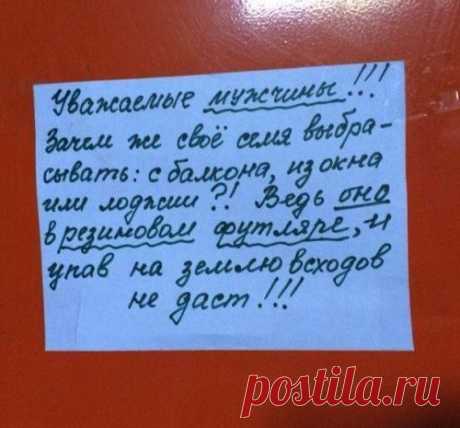 Уважаемые мужчины!!!
Зачем же своё семя выбра-
сывать: с балкона, из окна
или лоджии?! Ведь оно
в резиновом футляре, и
упав на землю всходов
не даст!!!
postila.ru